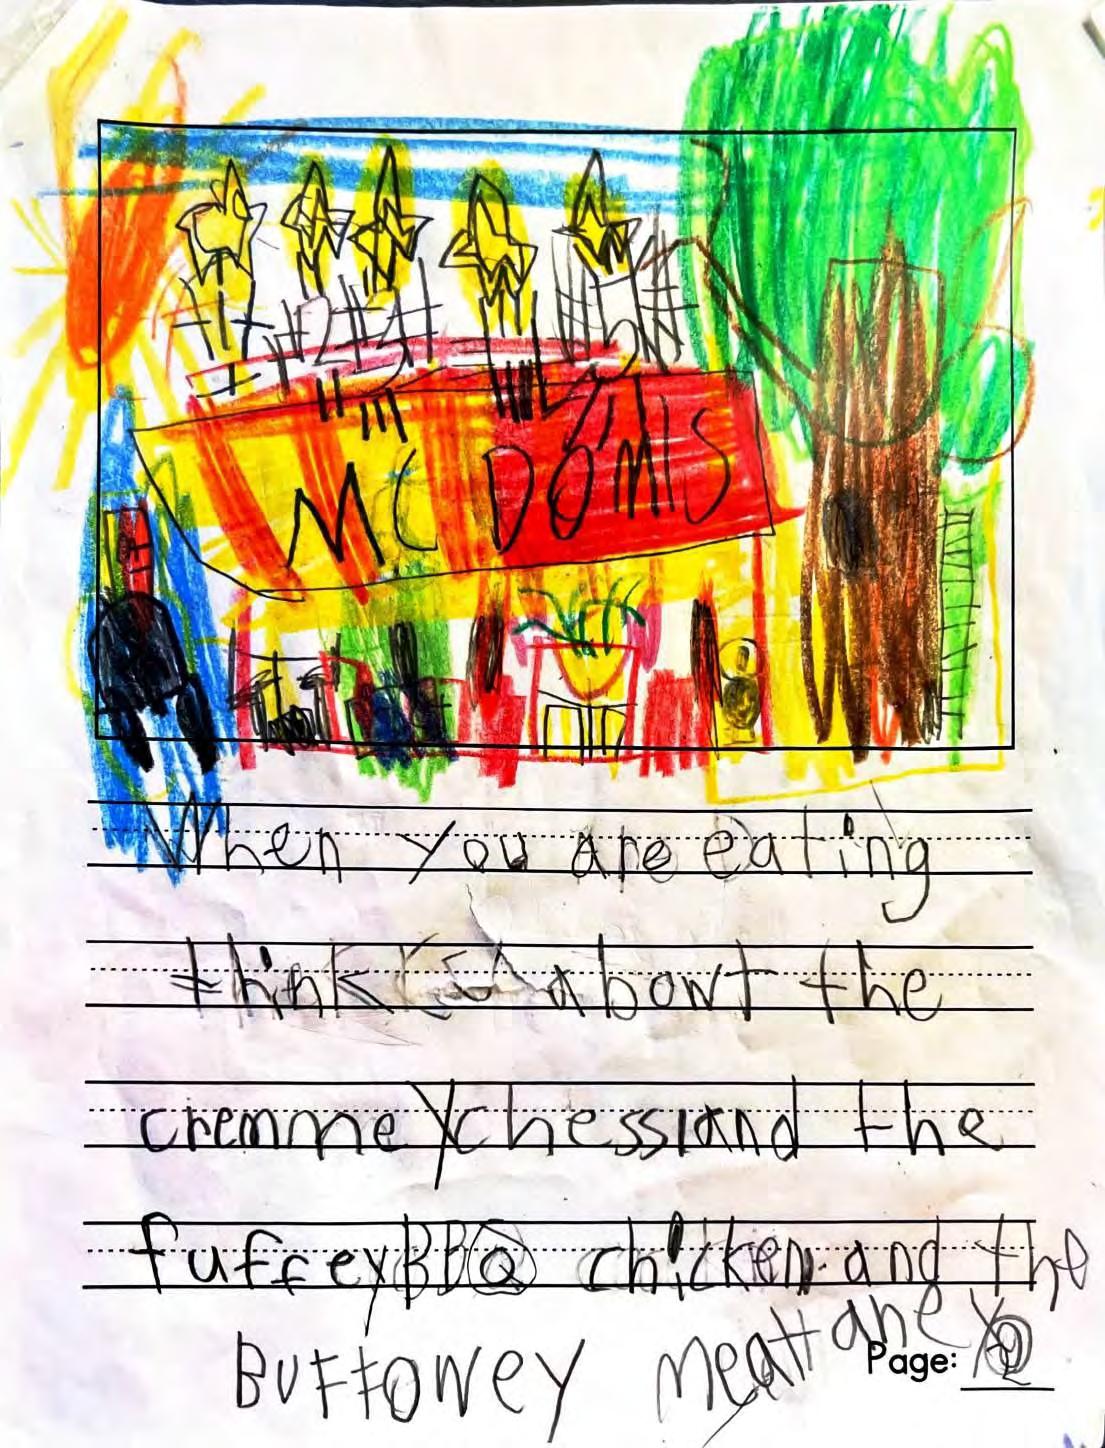 MC DONIS
When you are eating
think abowt the
cremmey chess and the
fuffey BBQ chicken. and the
Buttowey meat
Page: 2